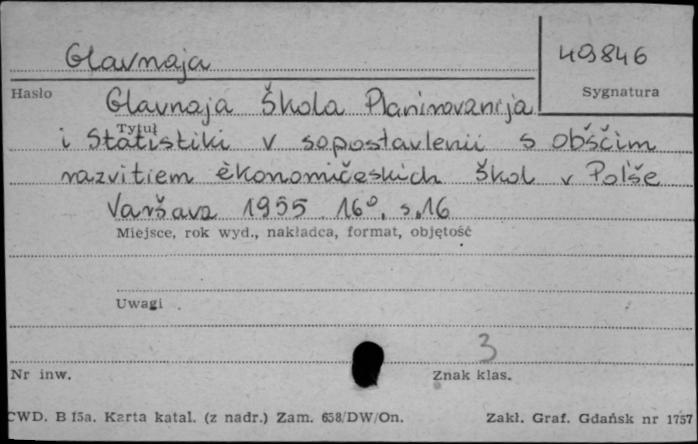 Glavnaja
49846
Hasło
Sygnatura
Glavnaja Škola Planirovanija
Tytuł
i Statistiki v sopostavlenii s obščim
razvitiem èkonomičeskich škol v Pol'še
Varšava 1955. 16°. s. 16
Miejsce, rok wyd., nakładca, format, objętość
Uwagi
3
Nr inw.
Znak klas.
CWD. B 15a. Karta katal. (z nadr.) Zam. 658/DW/On.
Zakł. Graf. Gdańsk nr 1757